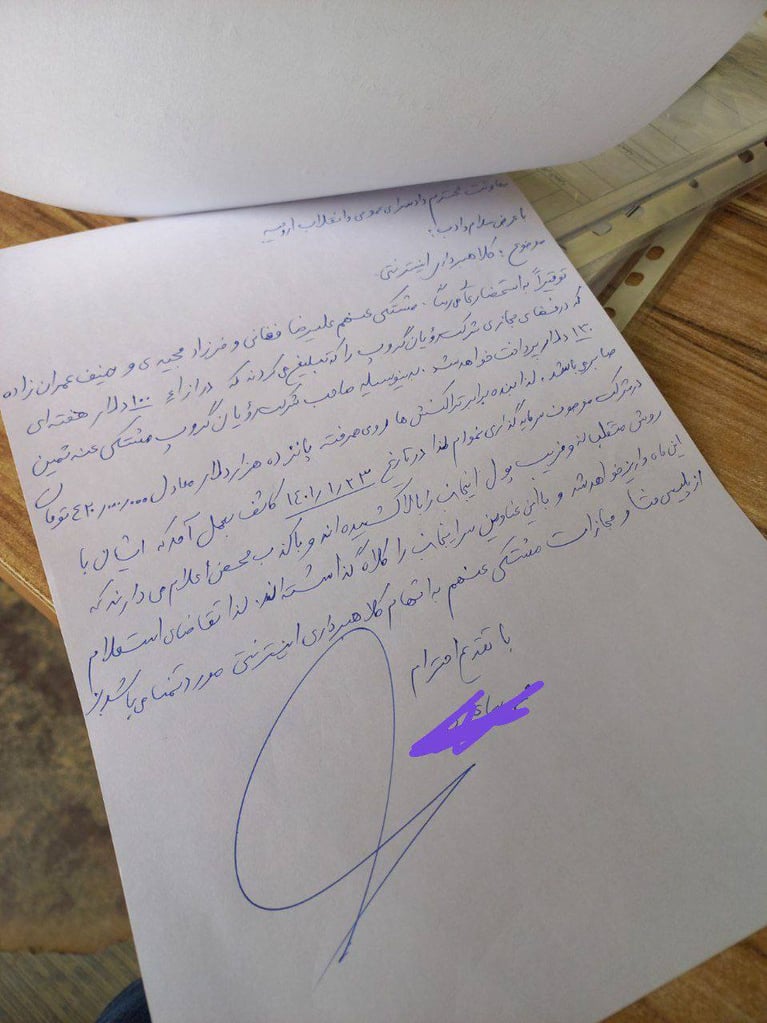 معاونت محترم دادسرای عمومی و انقلاب ارومیه
با عرض سلام و ادب؛
موضوع: کلاهبرداری اینترنتی
توقیراً به استحضار عالی میرساند. مشتکی عنهم علیرضا فغانی و فرزاد مجیدی و حنیف عمران زاده
که در فضای مجازی شرکت رؤیان گروپ را که تبلیغ می کردند که در ازاءِ ۱۰۰ دلار هفته ای
۱۳۰ دلار پرداخت خواهد شد. بدینوسیله صاحب شرکت رؤیان گروپ مشتکی عنه ثمین
صابر می باشد. لذا بنده برابر تراکنش ها روی همرفته پانزده هزار دلار معادل ۴۲۰٫۰۰۰٫۰۰۰ تومان
در شرکت موصوف سرمایه گذاری نموام لذا در تاریخ ۱۴۰۱/۱/۲۳ کاشف بعمل آمد که ایشان با
روش متقلبانه و فریب پول اینجانب را بالا کشیده اند و با کذب محض اعلام می دارند که
این ماه واریز خواهد شد و با این عناوین سر اینجانب را کلاه گذاشته اند. لذا تقاضای استعلام
از پلیس فتا و مجازات مشتکی عنهم به اتهام کلاهبرداری اینترنتی مورد تمنا می باشد.
با تقدیم احترام